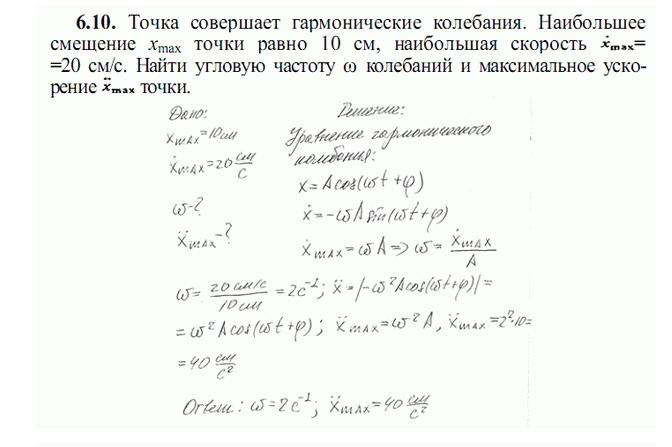 6.10. Точка совершает гармонические колебания. Наибольшее
смещение xmax точки равно 10 см, наибольшая скорость ẋmax=
=20 см/с. Найти угловую частоту ω колебаний и максимальное уско-
рение ẍmax точки.
Дано: Решение:
xmax=10см Уравнение гармонического
ẋmax=20 см/с колебания:
x=Acos(ωt+φ)
ω-? ẋ=-ωAsin(ωt+φ)
ẍmax-? ẋmax=ωA=>ω=ẋmax/A
ω=20 см/с/10 см=2с⁻¹; ẍ=|-ω²Acos(ωt+φ)|=
=ω²Acos(ωt+φ); ẍmax=ω²A, ẍmax=2²·10=
=40 см/с²
Ответ: ω=2с⁻¹; ẍmax=40 см/с²